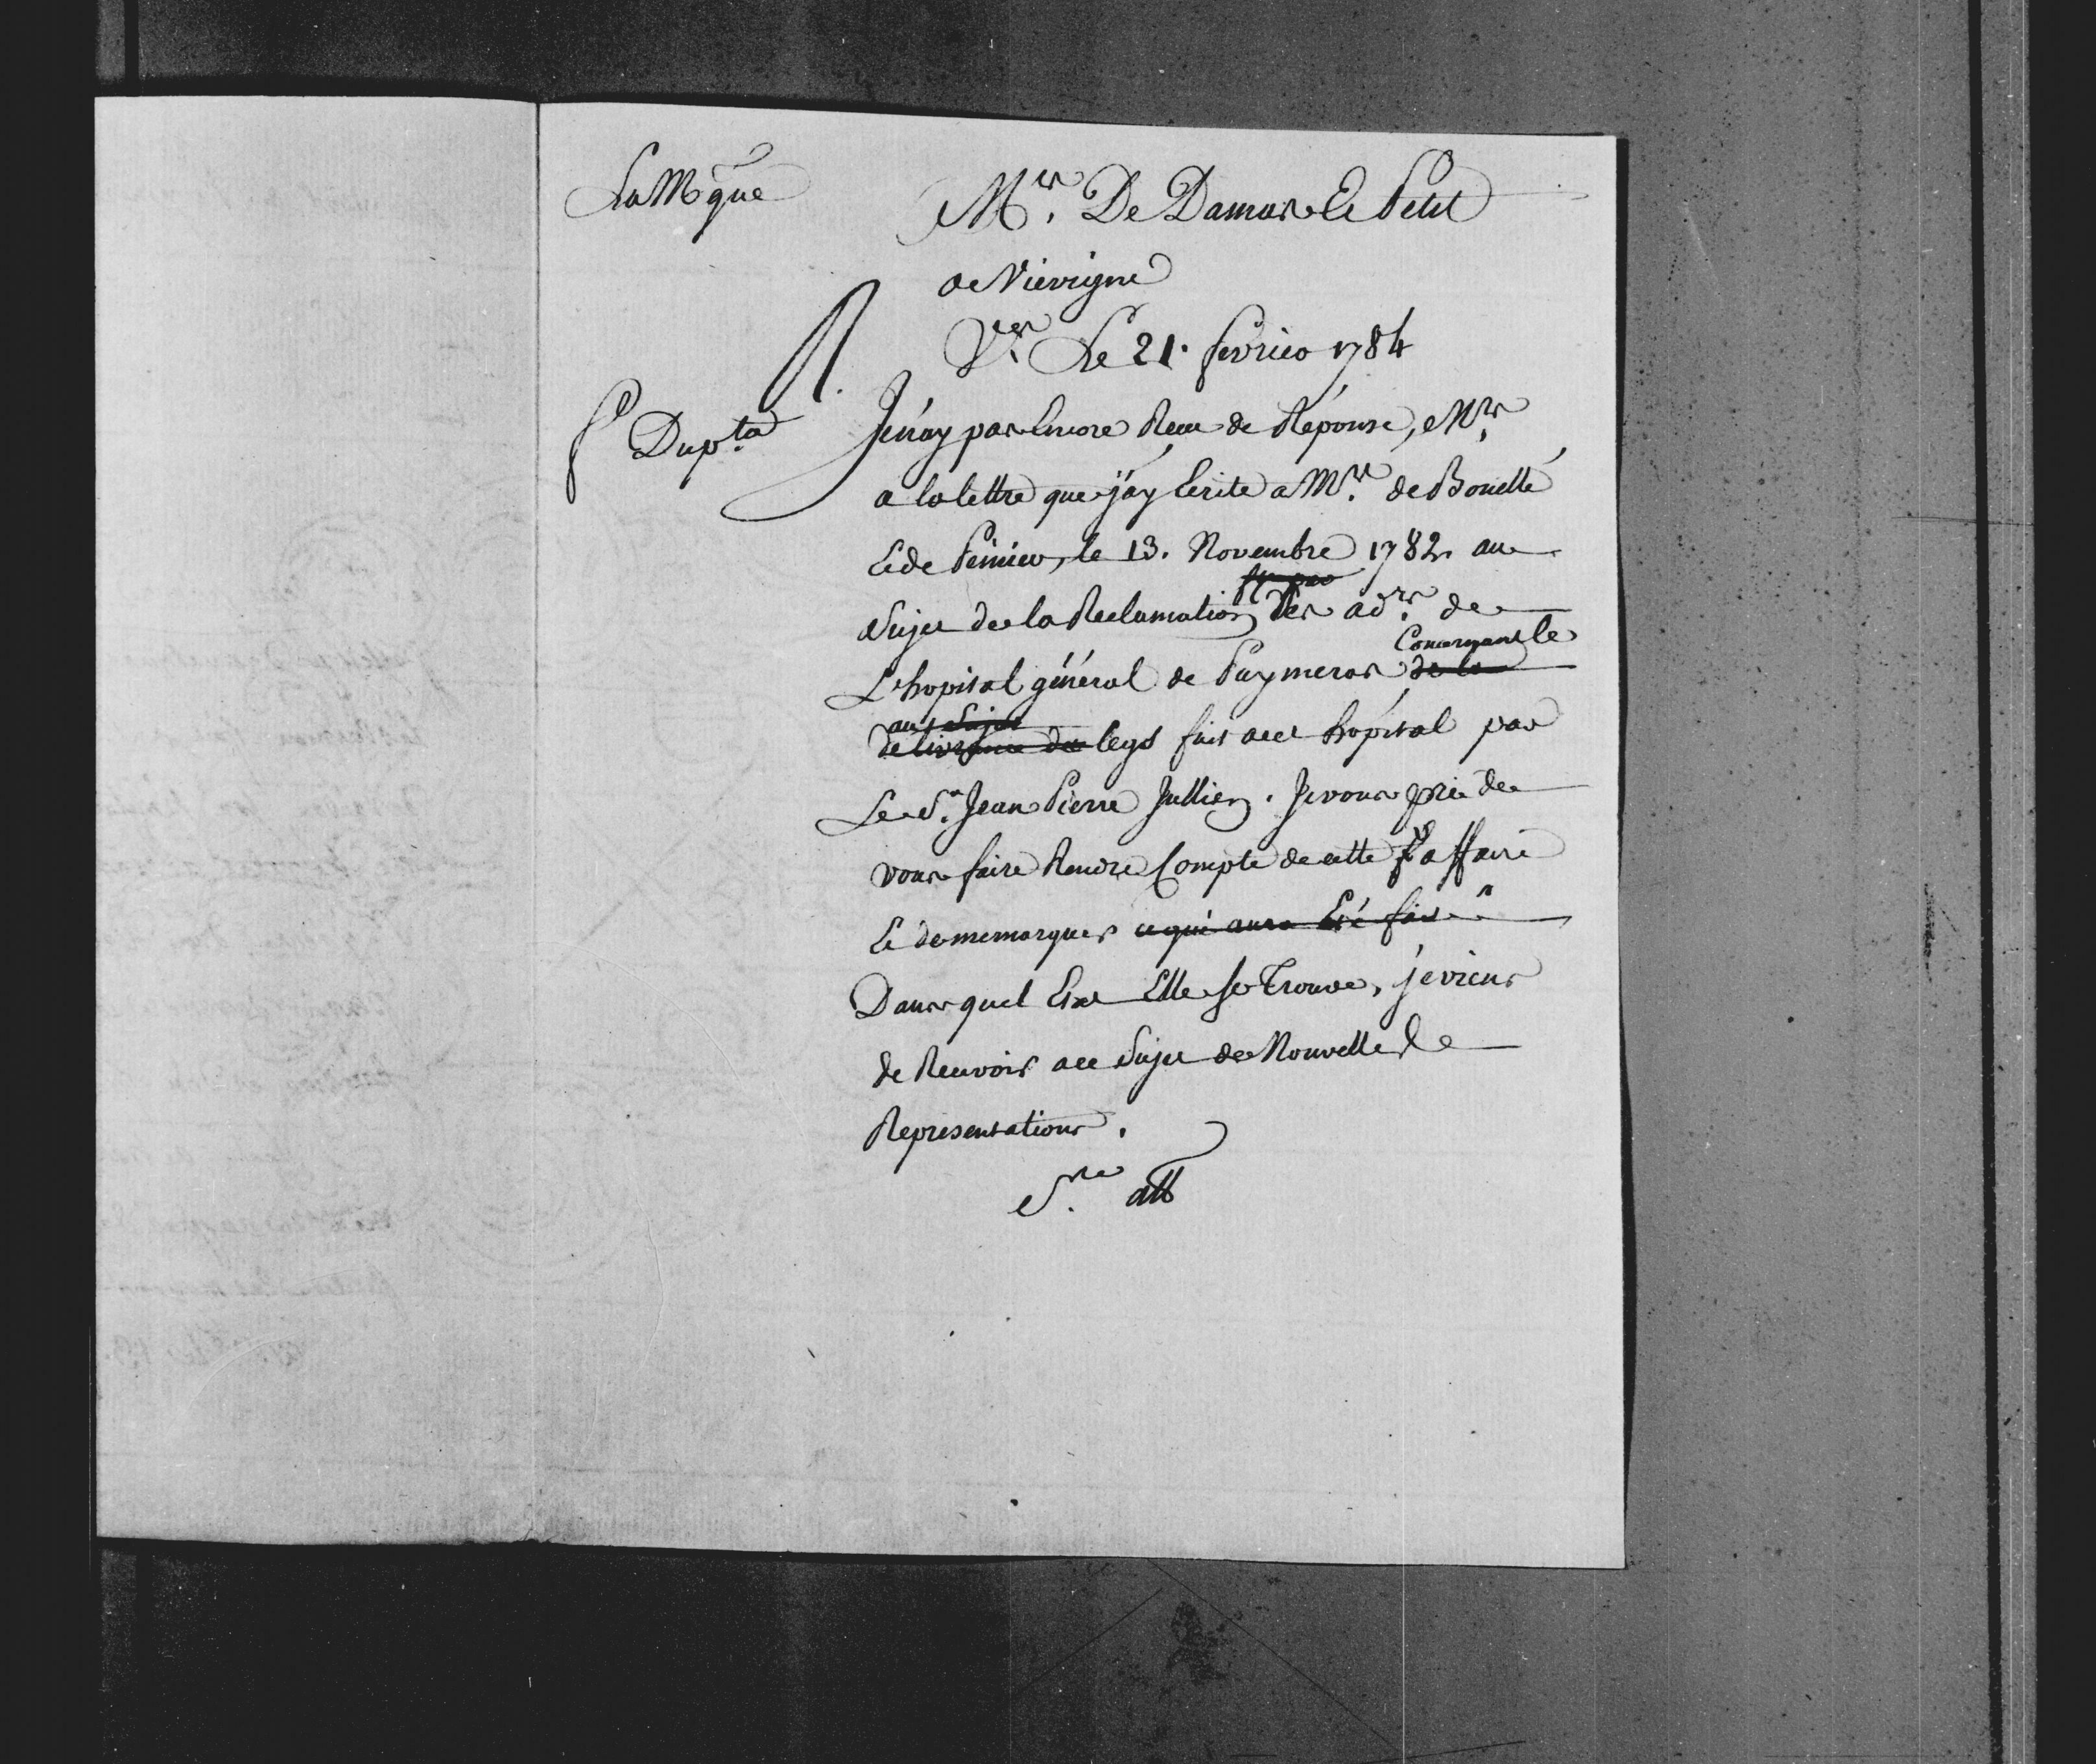 La Mque
Mrs. De Damas et Petit
de Viévigne
Vles. Le 21. fevrier 1784
Dupta
Je n'ay pas Encore Recu de Réponse, Mrs.
a la lettre que j'ay Ecrite a Mrs. de Bouillé
Et de Peinier, le 13. Novembre 1782. au
Sujet de la Reclamation des adrs. de
L'hopital général de Puymeras Concernant le
legs fait acet hopital par
Le S. Jean Pierre Jullien. Je vous prie de
vous faire Rendre Compte de cette affaire
Et de me marquer
Dans quel Etat Elle se Trouve, je viens
de Recevoir a ce Sujet de Nouvelles
Representations.